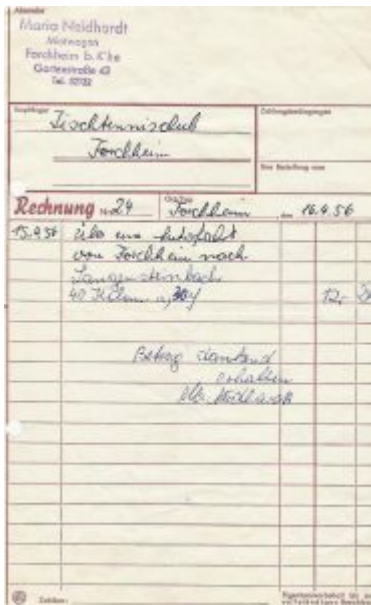 Absender
Maria Neidhardt
Mietwagen
Forchheim b. K'he
Gartenstraße 43
Tel.
Empfänger
Tischtennisclub
Forchheim
Zahlungsbedingungen
Ihre Bestellung vom
Rechnung Nr. 24 Forchheim den 16.4.56
15.4.56 über eine Autofahrt
von Forchheim nach
Langensteinbach
40 Kilom a, 30
12,-
Betrag dankend
erhalten